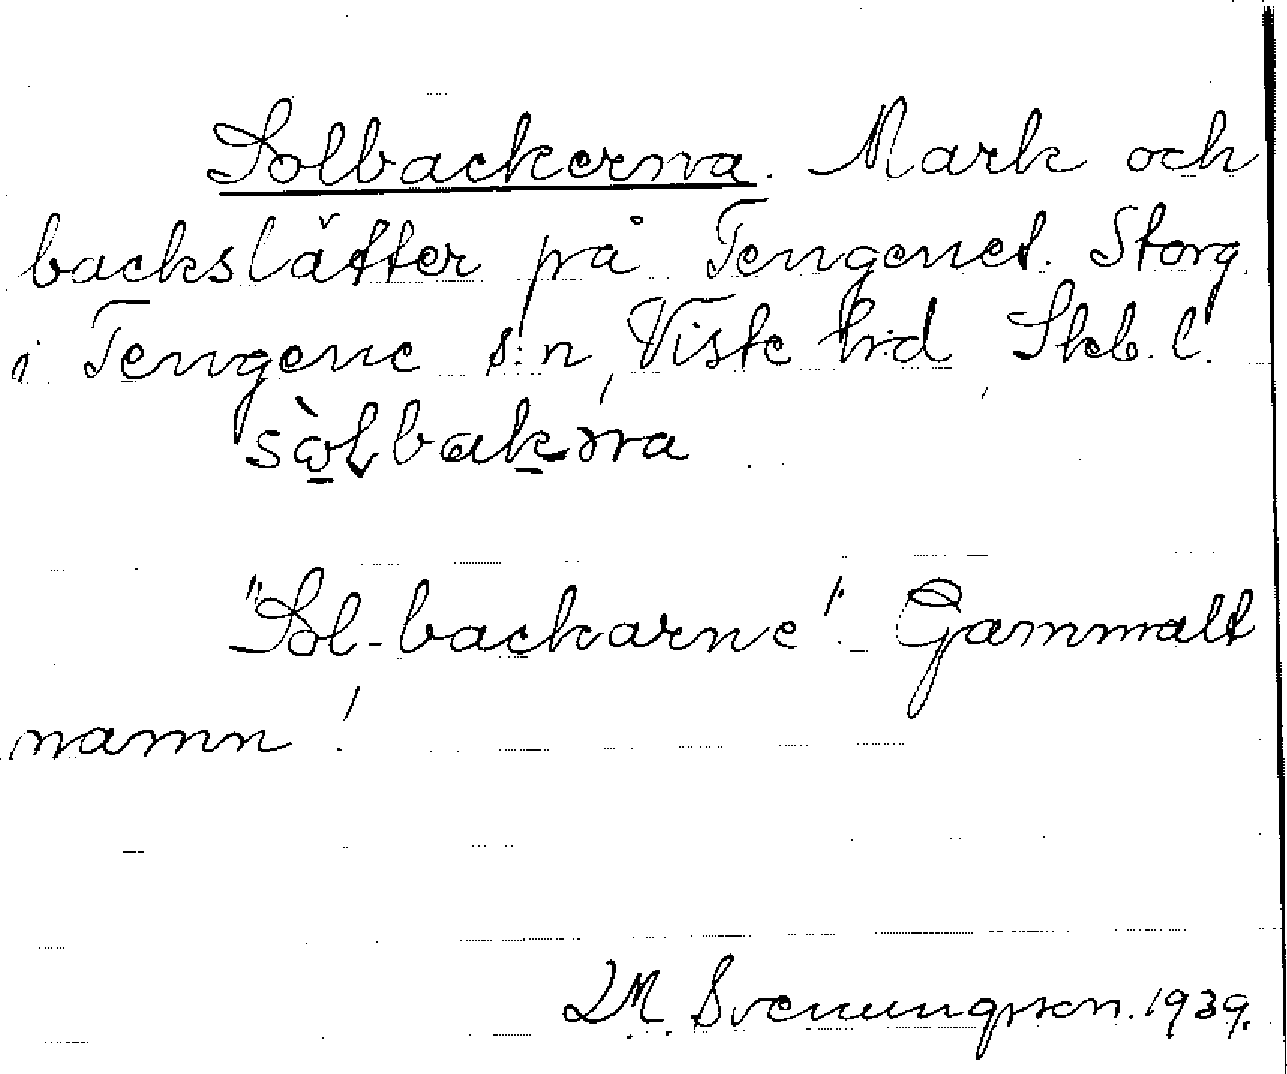 Solbackerna. Mark och
backslåtter på Tengenet. Storg
i Tengene s:n, Viste hrd, Skb. l.
"Sol-backarne". Gammalt
namn!
Svenungsson. 1939.